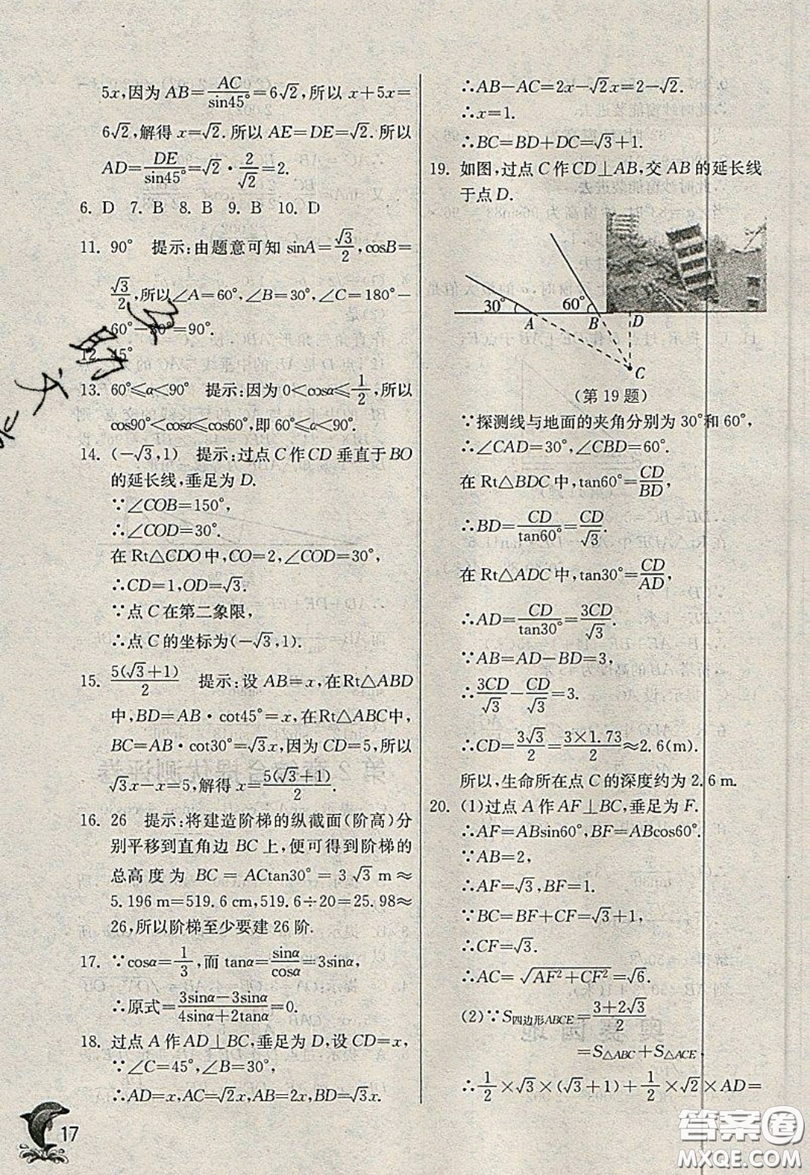 5x,因为AB=AC/sin45°=6√2,所以x+5x=
6√2,解得x=√2.所以AE=DE=√2.所以
AD=DE/sin45°=√2·2/√2=2.
6. D 7. B 8. B 9. B 10. D
11. 90° 提示:由题意可知sinA=√3/2,cosB=
√3/2,所以∠A=60°,∠B=30°,∠C=180°-
60°-30°=90°.
12. 45°
13. 60°≤α<90° 提示:因为0<cosα≤1/2,所以
cos90°<cosα≤cos60°,即60°≤α<90°.
14. (-√3,1) 提示:过点C作CD垂直于BO
的延长线,垂足为D.
∵∠COB=150°,
∴∠COD=30°.
在Rt△CDO中,CO=2,∠COD=30°,
∴CD=1,OD=√3.
∵点C在第二象限,
∴点C的坐标为(-√3,1).
15. 5(√3+1)/2 提示:设AB=x,在Rt△ABD
中,BD=AB·cot45°=x,在Rt△ABC中,
BC=AB·cot30°=√3x=5+x,x=5(√3+1)/2.
16. 26 提示:将建造阶梯的纵截面(阶高)分
别平移到直角边BC上,便可得到阶梯的
总高度为BC=ACtan30°=3√3 m≈
5.196 m=519.6 cm,519.6÷20=25.98≈
26,所以阶梯至少要建26阶.
17. ∵cosα=1/3,而tanα=sinα/cosα=3sinα,
∴原式=(3sinα-3sinα)/(4sinα+2tanα)=0.
18. 过点A作AD⊥BC,垂足为D,设CD=x,
∵∠C=45°,∠B=30°,
∴AD=x,AC=√2x,AB=2x,BD=√3x.
17
∴AB-AC=2x-√2x=2-√2.
∴x=1.
∴BC=BD+DC=√3+1.
19. 如图,过点C作CD⊥AB,交AB的延长线
于点D.
30° 60°
A B D
C
(第19题)
∵探测线与地面的夹角分别为30°和60°,
∴∠CAD=30°,∠CBD=60°.
在Rt△BDC中,tan60°=CD/BD,
∴BD=CD/tan60°=CD/√3.
在Rt△ADC中,tan30°=CD/AD,
∴AD=CD/tan30°=3CD/√3.
∵AB=AD-BD=3,
∴3CD/√3-CD/√3=3.
∴CD=3√3/2=3×1.73/2≈2.6(m).
所以,生命所在点C的深度约为2.6 m.
20. (1)过点A作AF⊥BC,垂足为F.
∴AF=ABsin60°,BF=ABcos60°.
∵AB=2,
∴AF=√3,BF=1.
∵BC=BF+CF=√3+1,
∴CF=√3.
∴AC=√(AF²+CF²)=√6.
(2)∵S四边形ABCE=(3+2√3)/2
=S△ABC+S△ACE,
∴1/2×√3×(√3+1)+1/2×√2×AD=
答案圈
MXQE.COM